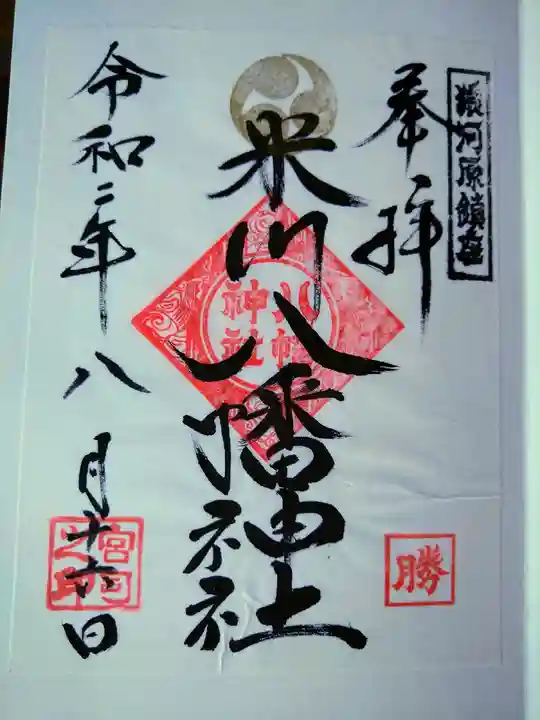 河原鎮座
奉拝
米川八幡神社
八幡
神社
令和二年八月十六日
勝
宮司
之印